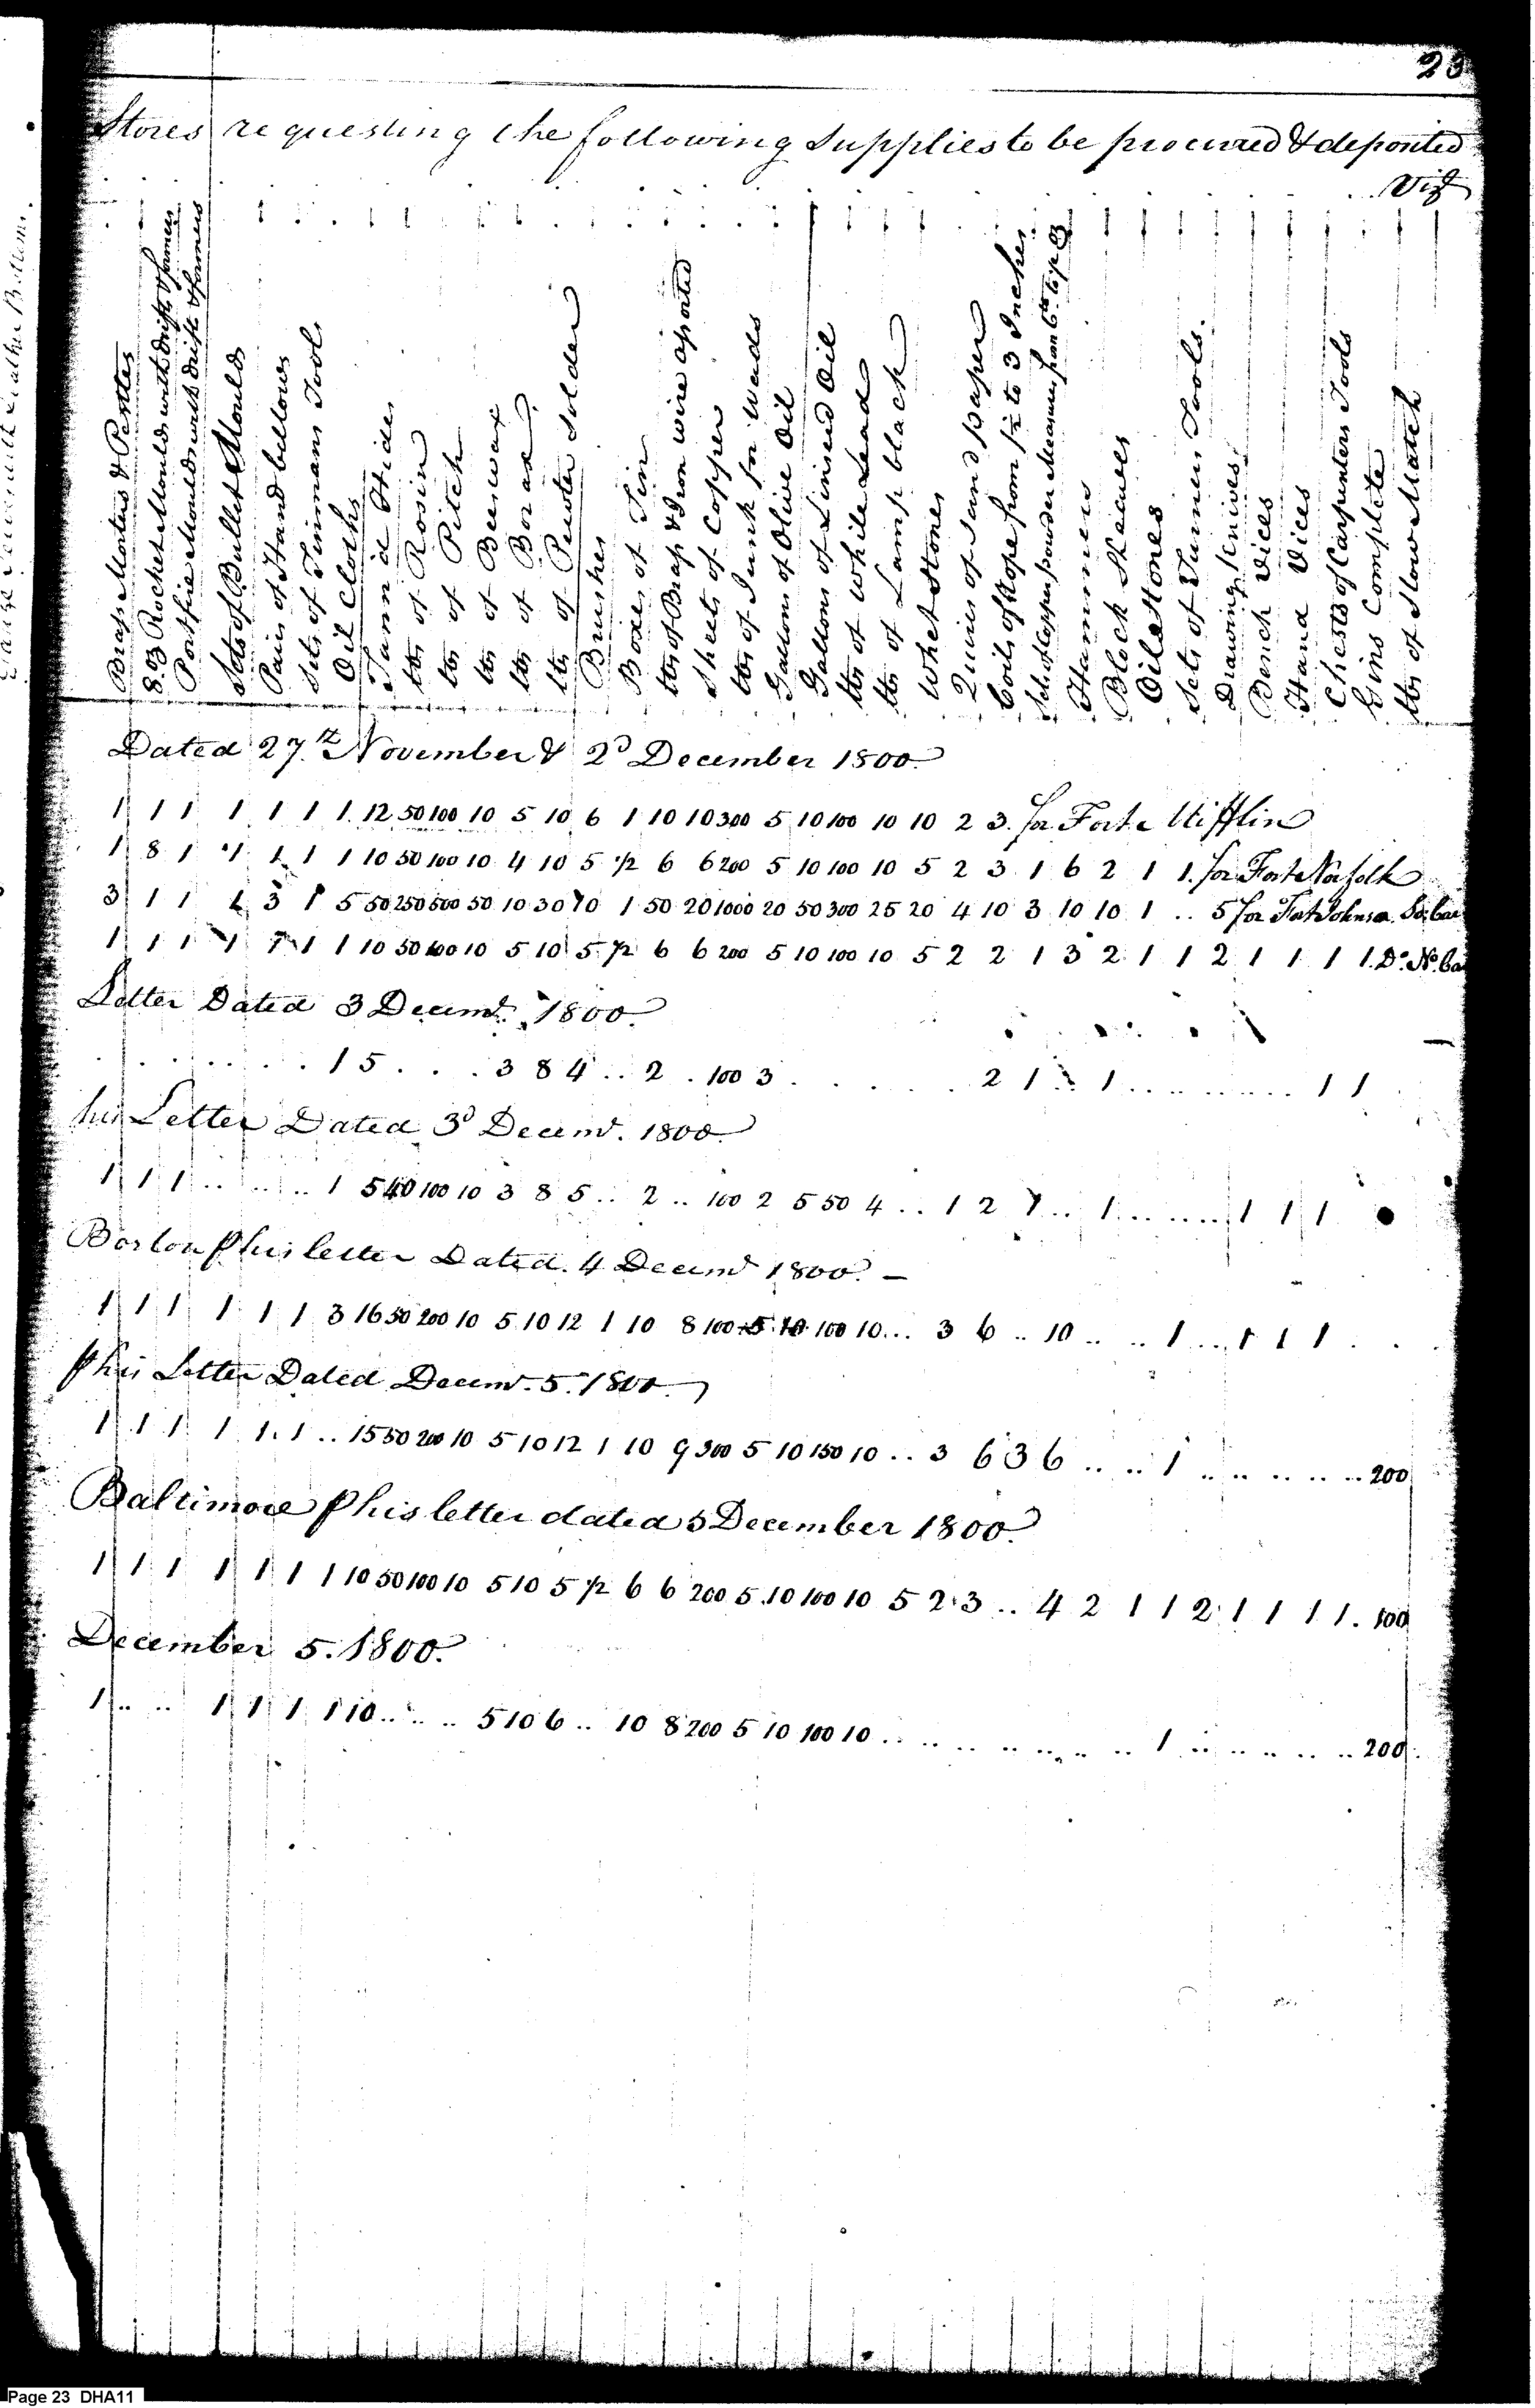 23
Stores requesting the following Supplies to be procured & deposited
Viz
Brass Mortars & Pestles
8 oz Rocket Moulds with drifts & formers
Portfire Moulds with drifts & formers
Sets of Bullet Moulds
Pairs of Hand bellows
Sets of Tinmans Tools
Oil Cloths
Tann'd Hides
lbs of Rosin
lbs of Pitch
lbs of Beeswax
lbs of Borax
lbs of Pewter Solder
Brushes
Boxes of Tin
lbs of Brass & Iron wire assorted
Sheets of Copper
lbs of Junk for Wads
Gallons of Olive Oil
Gallons of Linseed Oil
lbs of White Lead
lbs of Lamp black
Whet Stones
Quires of Sand paper
Coils of Rope from 1½ to 3 Inches
Sets of Copper powder Measures from 6lb to
Hammers
Block Sheaves
Oil Stones
Sets of Turners Tools.
Drawing Knives
Bench Vices
Hand Vices
Chests of Carpenters Tools
Gins Complete
lbs of Slow Match
Dated 27th November & 2d December 1800
1 1 1 1 1 1 1 12 50 100 10 5 10 6 1 10 10 300 5 10 100 10 10 2 3. for Fort Mifflin
1 8 1 1 1 1 1 10 50 100 10 4 10 5 1/2 6 6 200 5 10 100 10 5 2 3 1 6 2 1 1. for Fort Norfolk
3 1 1 1 3 1 5 50 250 500 50 10 30 10 1 50 20 1000 20 50 300 25 20 4 10 3 10 10 1 .. 5 for Fort Johnson So. Car
1 1 1 1 1 1 1 10 50 100 10 5 10 5 1/2 6 6 200 5 10 100 10 5 2 2 1 3 2 1 1 2 1 1 1 1 1. Do. No. Ca
Letter Dated 3 Decemr. 1800.
1 5 . . . 3 8 4 .. 2 . 100 3 . . . . . . 2 1 1 .. 1 1
his Letter Dated 3d Decemr. 1800
1 1 1 .. .. .. .. 1 5 40 100 10 3 8 5 .. 2 .. 100 2 5 50 4 .. 1 2 1 .. 1 .. .. .. 1 1 1
Boston p his letter Dated. 4 Decemr 1800. —
1 1 1 1 1 1 3 16 50 200 10 5 10 12 1 10 8 100 5 10 100 10 ... 3 6 .. 10 .. .. 1 ... 1 1 1 . .
p his Letter Dated Decemr. 5. 1800.
1 1 1 1 1. 1 .. 15 50 200 10 5 10 12 1 10 9 300 5 10 150 10 .. 3 6 3 6 .. .. 1 .. .. .. .. .. 200
Baltimore p his letter dated 5 December 1800.
1 1 1 1 1 1 1 10 50 100 10 5 10 5 1/2 6 6 200 5 10 100 10 5 2 3 .. 4 2 1 1 2 1 1 1 1. 100
December 5. 1800.
1 .. .. 1 1 1 1 10 .. .. .. 5 10 6 .. 10 8 200 5 10 100 10 .. .. .. .. .. .. .. 1 .. .. .. .. .. 200
Page 23 DHA11